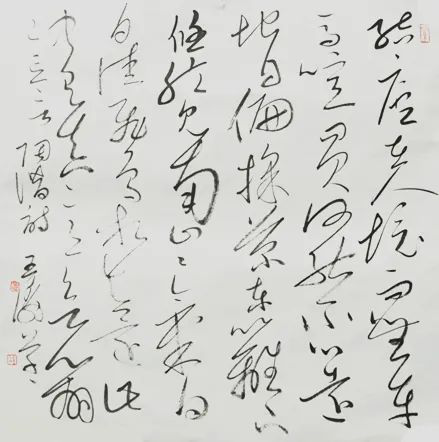 結廬在人境而無車
馬喧問君何能爾心遠
地自偏採菊東籬下
悠然見南山々氣日夕
佳飛鳥相與還此
中有真意欲辨
已忘言 陶潛詩 王